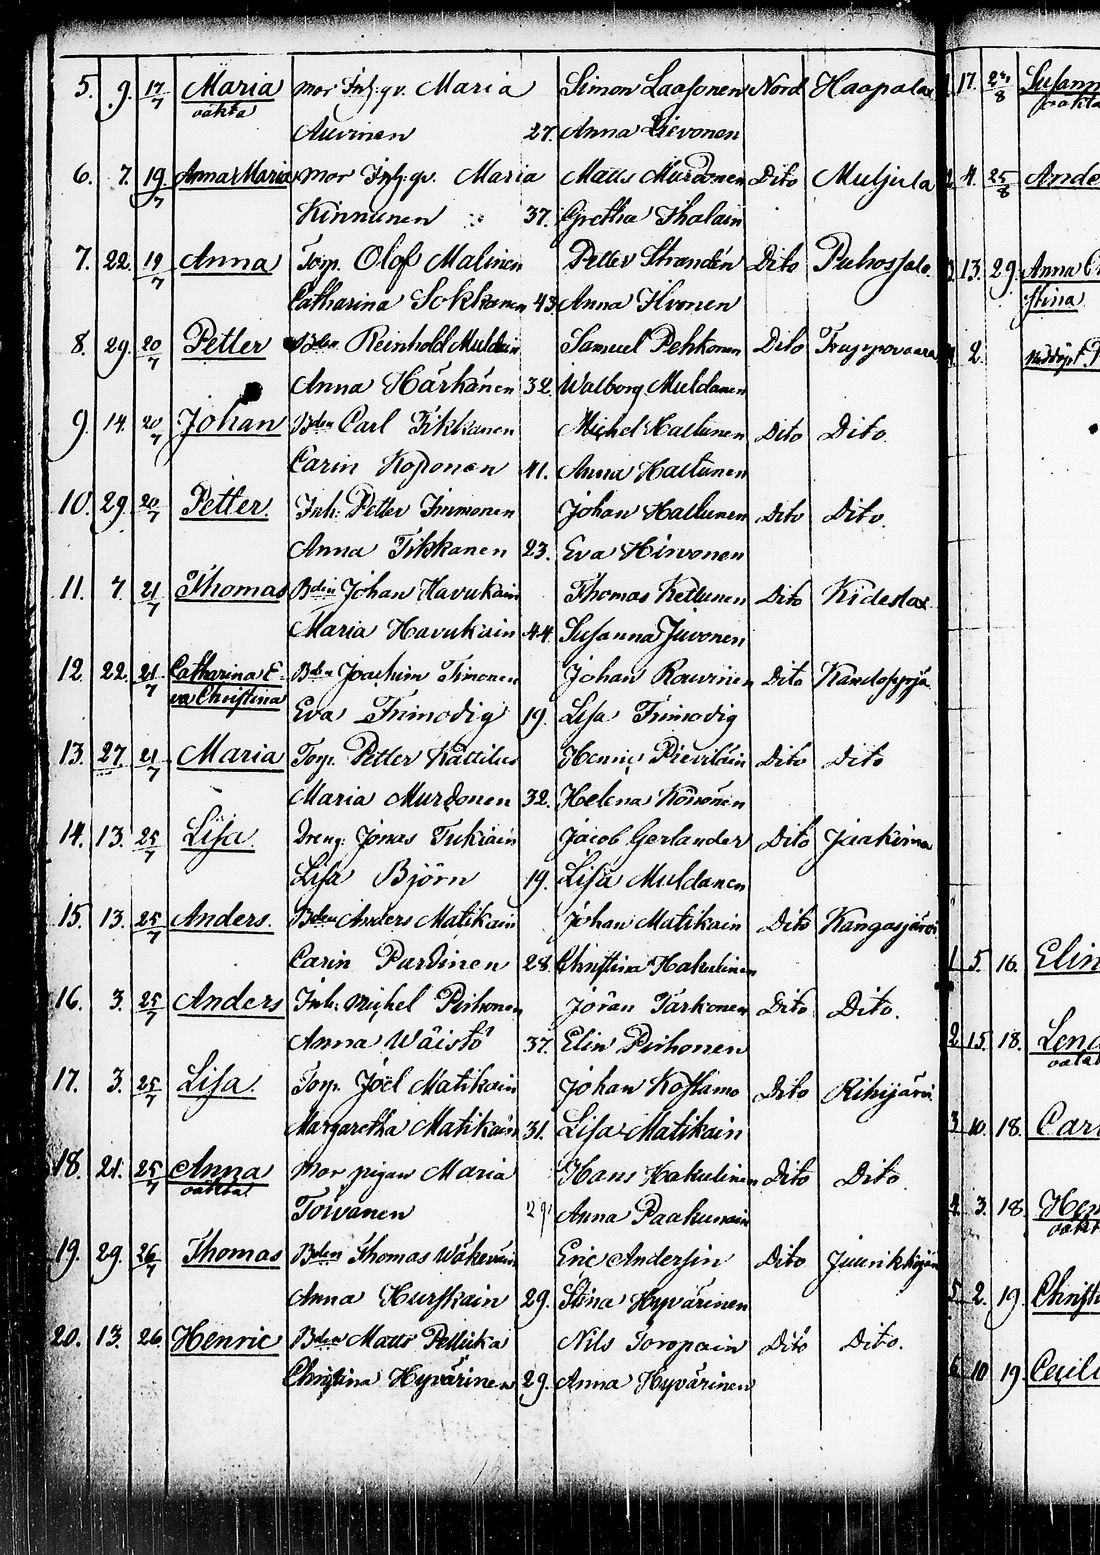 5. 9. 17/7 Maria mor Inh: gv. Maria Simon Laasonen Nord Haapalax
oäkta Auvinen 27. Anna Lievonen
6. 7. 19/7 Anna Maria mor Inh: gv. Maria Matts Murdonen Dito Muljula
Kinnunen 37. Gretha Thalain
7. 22. 19/7 Anna Torp. Olof Malinen Petter Strandén Dito Puhossalo
Catharina Sokkanen 43. Anna Ilvonen
8. 29. 20/7 Petter Bden Reinhold Muldain Samuel Pehkonen Dito
Anna Härkänen 32. Walborg Muldanen
9. 14. 20/7 Johan Bden Carl Tikkanen Michel Hallunen Dito Dito
Carin Koponen 41. Anna Hallunen
10. 29. 20/7 Petter. Inh: Petter Immonen Johan Hallunen Dito Dito.
Anna Tikkanen 23. Eva Hirvonen
11. 7. 21/7 Thomas Bden Johan Havukain Thomas Kettunen Dito Kideslax
Maria Havukain 44. Susanna Juvonen
12. 22. 21/7 Catharina E- Bden Joachim Simonen Johan Rouvinen Dito
va Christina Eva Trimodig 19. Lisa Trimodig
13. 27. 21/7 Maria Torp. Petter Kattilus Henric Dito Dito
Maria Murdonen 32. Helena Könönen
14. 13. 25/7 Lisa. Dreng. Jonas Tukiain Jacob Gerlander Dito Jaakima
Lisa Björn 19. Lisa Muldanen
15. 13. 25/7 Anders. Bden Anders Matikain Johan Matikain Dito Kangasjärvi
Carin Purdinen 28. Christina Hakulinen
16. 3. 25/7 Anders Inh: Michel Pirhonen Jöran Tarkonen Dito Dito.
Anna Wäistö 37. Elin Pirhonen
17. 3. 25/7 Lisa. Torp. Joel Matikain Johan Kostamo Dito Riihijärvi
Margaretha Matikain 31. Lisa Matikain
18. 21. 25/7 Anna mor pigan Maria Hans Hakulinen Dito Dito.
oäkta. Toivanen 29. Anna Paakunain
19. 29. 26/7 Thomas Bden Thomas Wäkeväin Eric Andersin Dito Juurikkajärvi
Anna Hurskain 29. Stina Hyvärinen
20. 13. 26. Henric Bden Matts Nils Soropain Dito Dito.
Christina Hyvärinen 29. Anna Hyvärinen
17. Susann
oäkta
4. 25/8 Ande
13. 29. Anna Ch
stina
2.
1 5 16. Elin
2 15 18. Lena
oäkta
3 10. 18. Cari
4 3. 18. Hen
oäkta
5 2. 19. Christ
6 10 19. Cecili